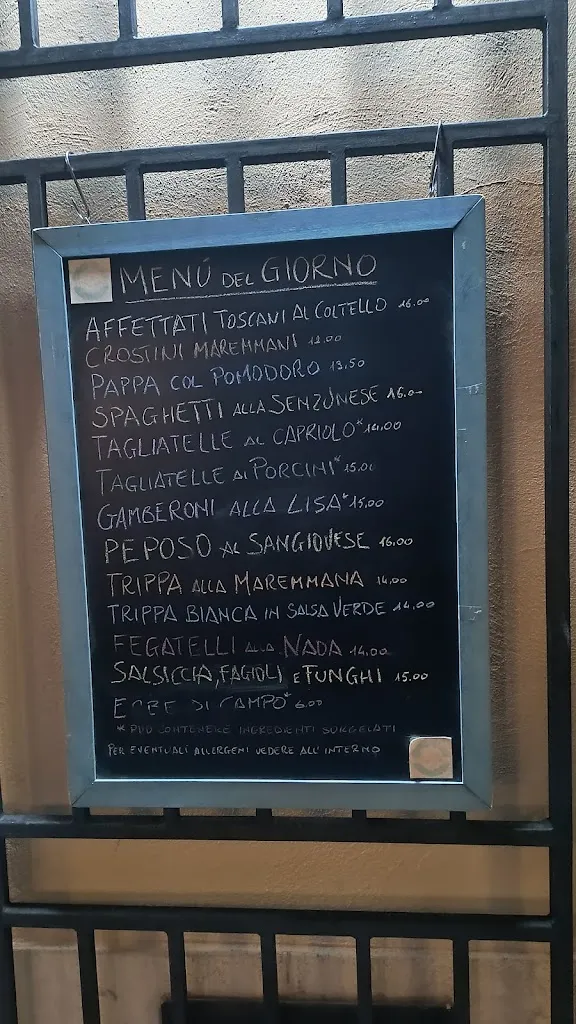 MENÚ DEL GIORNO
AFFETTATI TOSCANI AL COLTELLO 16.00
CROSTINI MAREMMANI 12.00
PAPPA COL POMODORO 13,50
SPAGHETTI ALLA SENZUNESE 16.00
TAGLIATELLE AL CAPRIOLO* 16,00
TAGLIATELLE AI PORCINI* 15.00
GAMBERONI ALLA LISA* 15,00
PEPOSO AL SANGIOVESE 16,00
TRIPPA ALLA MAREMMANA 14.00
TRIPPA BIANCA IN SALSA VERDE 14,00
FEGATELLI ALLA NADA 14.00
SALSICCIA, FAGIOLI E FUNGHI 15.00
ERBE DI CAMPO* 6.00
* PUÒ CONTENERE INGREDIENTI SURGELATI
PER EVENTUALI ALLERGENI VEDERE ALL'INTERNO